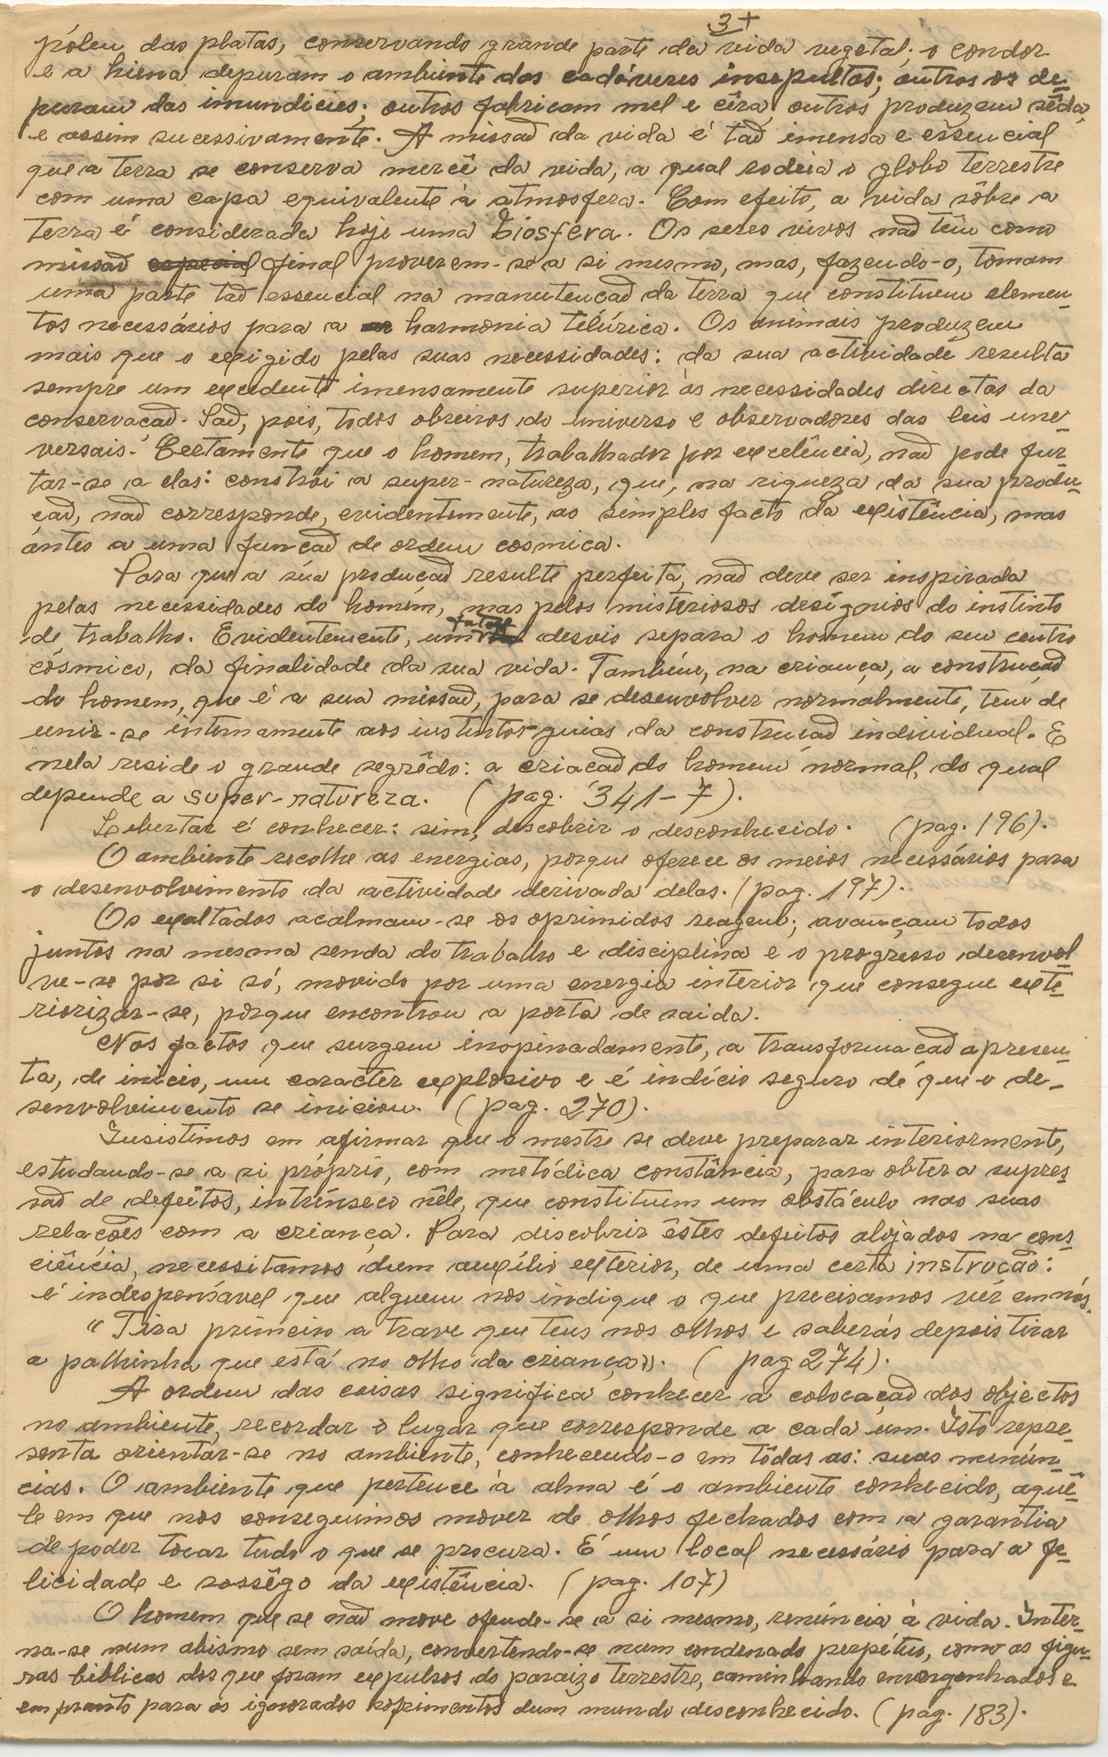 3+
pólen das platas, conservando grande parte da vida vegetal; o condor
e a hiena depuram o ambiente dos cadáveres insepultos; outros os de-
puram das imundicies; outros fabricam mel e cêra, outros produzem sêda,
e assim sucessivamente. A missaõ da vida é taõ imensa e essencial
que a terra se conserva mercê da vida, a qual rodeia o globo terrestre
com uma capa equivalente à atmosfera. Com efeito, a vida sôbre a
terra é considerada hoje uma Biosfera. Os seres vivos naõ têm como
missaõ especial final proverem-se a si mesmo, mas, fazendo-o, tomam
uma parte taõ essencial na manutençaõ da terra que constituem elemen-
tos necessários para a harmonia telúrica. Os animais produzem
mais que o exigido pelas suas necessidades: da sua actividade resulta
sempre um excedente imensamente superior às necessidades directas da
conservaçaõ. Saõ, pois, todos obreiros do universo e observadores das leis uni-
versais. Certamente que o homem, trabalhador por excelência, naõ pode fur-
tar-se a elas: constrói a super-natureza, que, na riqueza da sua produ-
çaõ, naõ corresponde, evidentemente, ao simples facto da existência, mas
ántes a uma funçaõ de ordem cosmica.
Para que a súa produçaõ resulte perfeita, naõ deve ser inspirada
pelas necessidades do homem, mas pelos misteriosos desígnios do instinto
de trabalho. Evidentemente, um fatal desvio separa o homem do seu centro
cósmico, da finalidade da sua vida. Também, na criança, a construçaõ
do homem, que é a sua missaõ, para se desenvolver normalmente, tem de
unir-se internamente aos instintos-guias da construçaõ individual. E
nela reside o grande segrêdo: a criacaõ do homem normal, do qual
depende a super-natureza. (pag. 341-7).
Libertar é conhecer: sim, descobrir o desconhecido. (pag. 196).
O ambiente recolhe as energias, porque oferece os meios necessários para
o desenvolvimento da actividade derivada delas. (pag. 197).
Os exaltados acalmam-se os oprimidos reagem; avançam todos
juntos na mesma senda do trabalho e disciplina e o progresso desenvol
ve-se por si só, movido por uma energia interior que consegue exte-
riorizar-se, porque encontrou a porta de saida.
Nos factos que surgem inopinadamente, a transformacaõ apresen-
ta, de inicio, um caracter explosivo e é indício seguro de que o de-
senvolvimento se iniciou. (pag. 270).
Insistimos em afirmar que o mestre se deve preparar interiormente,
estudando-se a si próprio, com metódica constância, para obter a supres-
saõ de defeitos, intrínseco nêle, que constituem um obstáculo nas suas
relações com a criança. Para discobrir êstes defeitos alojados na cons-
ciência, necessitamos dum auxílio exterior, de uma certa instrução:
é indespensável que alguem nos indique o que precisamos vêr em nós.
"Tira primeiro a trave que tens nos olhos e saberás depois tirar
a palhinha que está no olho da criança". (pag 274).
A ordem das coisas significa conhecer a colocacaõ dos objectos
no ambiente, recordar o lugar que corresponde a cada um. Isto repre-
senta orientar-se no ambiente, conhecendo-o em tôdas as: suas minún-
cias. O ambiente que pertence à alma é o ambiente conhecido, aquê-
le em que nos conseguimos mover de olhos fechados com a garantia
de poder tocar tudo o que se procura. É um local necessário para a fe-
licidade e sossêgo da existência. (pag. 107)
O homem que se naõ move ofende-se a si mesmo, renúncia à vida. Inter-
na-se num abismo sem saída, convertendo-se num condenado perpétuo, como as figu-
ras biblicas dos que foram expulsos do paraizo terrestre, caminhando envergonhados e
em pranto para os ignorados sofrimentos dum mundo desconhecido. (pag. 183).